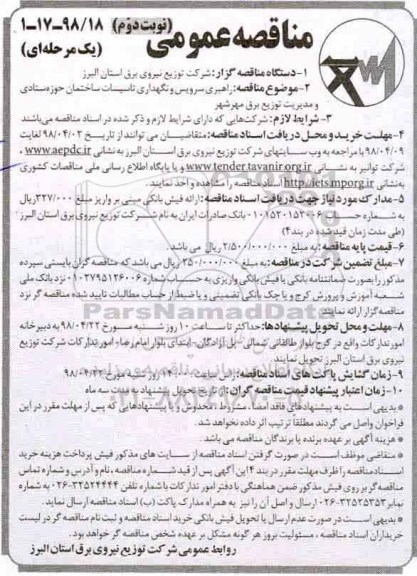 مناقصه عمومی
(نوبت دوم) ۹۸/۱۸-۱۷-۱
(یک مرحله‌ای)
۱- دستگاه مناقصه گزار: شرکت توزیع نیروی برق استان البرز
۲- موضوع مناقصه: راهبری سرویس و نگهداری تاسیسات ساختمان حوزه ستادی
و مدیریت توزیع برق مهرشهر
۳- شرایط لازم: شرکت‌هایی که دارای شرایط لازم و ذکر شده در اسناد مناقصه می‌باشند
۴- مهلت خرید و محل دریافت اسناد مناقصه: متقاضیان می توانند از تاریخ ۹۸/۰۴/۰۲ لغایت
۹۸/۰۴/۰۹ با مراجعه به وب سایتهای شرکت توزیع نیروی برق استان البرز به نشانی www.aepdc.ir ،
شرکت توانیر به نشانی www.tender.tavanir.org.ir و یا پایگاه اطلاع رسانی ملی مناقصات کشوری
به نشانی http://iets.mporg.ir اسناد مناقصه را مشاهده و اخذ نمایند.
۵- مدارک مورد نیاز جهت دریافت اسناد مناقصه: ارائه فیش بانکی مبنی بر واریز مبلغ ۳۲۷/۰۰۰ ریال
به شماره حساب ۰۱۰۱۵۲۰۱۵۳۰۰۶ بانک صادرات ایران به نام شرکت توزیع نیروی برق استان البرز
(طی مدت زمان قید شده در بند ۴)
۶- قیمت پایه مناقصه: به مبلغ ۲/۵۰۰/۰۰۰/۰۰۰ ریال می باشد.
۷- مبلغ تضمین شرکت در مناقصه: به مبلغ ۲۵۰/۰۰۰/۰۰۰ ریال می باشد که مناقصه گران بایستی سپرده
مذکور را بصورت ضمانتنامه بانکی یا فیش بانکی واریزی به حساب شماره ۰۱۰۲۷۹۵۱۲۶۰۰۶ نزد بانک ملی
شعبه آموزش و پرورش کرج و یا چک بانکی تضمینی و یا ضبط از حساب مطالبات تایید شده مناقصه گر نزد
مناقصه گزار ارائه نمایند.
۸- مهلت و محل تحویل پیشنهادها: حداکثر تا ساعت ۱۰ روز شنبه مورخ ۹۸/۰۴/۲۲ به دبیرخانه
امور تدارکات واقع در کرج بلوار طالقانی شمالی - پل آزادگان - ابتدای بلوار امام رضا - امور تدارکات شرکت توزیع
نیروی برق استان البرز تحویل نمایند.
۹- زمان گشایش پاکت های اسناد مناقصه: راس ساعت روز شنبه مورخ ۹۸/۰۴/۲۲
۱۰- زمان اعتبار پیشنهاد قیمت مناقصه گران: از تاریخ تحویل پیشنهاد به مدت سه ماه
* بدیهی است به پیشنهادهای فاقد امضا، مشروط، مخدوش و یا پیشنهادهایی که پس از مهلت مقرر در این
فراخوان واصل می گردند مطلقا ترتیب اثر داده نخواهد شد.
* هزینه آگهی بر عهده برنده یا برندگان مناقصه می باشد.
* متقاضی موظف است در صورت گرفتن اسناد مناقصه از سایت های مذکور فیش پرداخت هزینه خرید
اسناد مناقصه را ظرف مهلت مقرر در بند ۴ این آگهی پس از قید شماره مناقصه، نام و آدرس و شماره تماس
مناقصه گر بر روی فیش مذکور ضمن هماهنگی با دفتر امور تدارکات با شماره تلفن ۳۲۵۲۴۴۴۴-۰۲۶ به شماره
نمابر ۳۲۵۲۵۳۵۳-۰۲۶ ارسال و اصل آن را نیز به همراه مدارک پاکت (ب) اسناد مناقصه ارسال نماید.
* بدیهی است در صورت عدم ارسال یا تحویل فیش بانکی خرید اسناد مناقصه و ثبت نام مناقصه گر در لیست
خریداران اسناد مناقصه، مسئولیت بروز هر گونه مشکل بر عهده شخص مناقصه گر خواهد بود.
روابط عمومی شرکت توزیع نیروی برق استان البرز
ParsNamadData